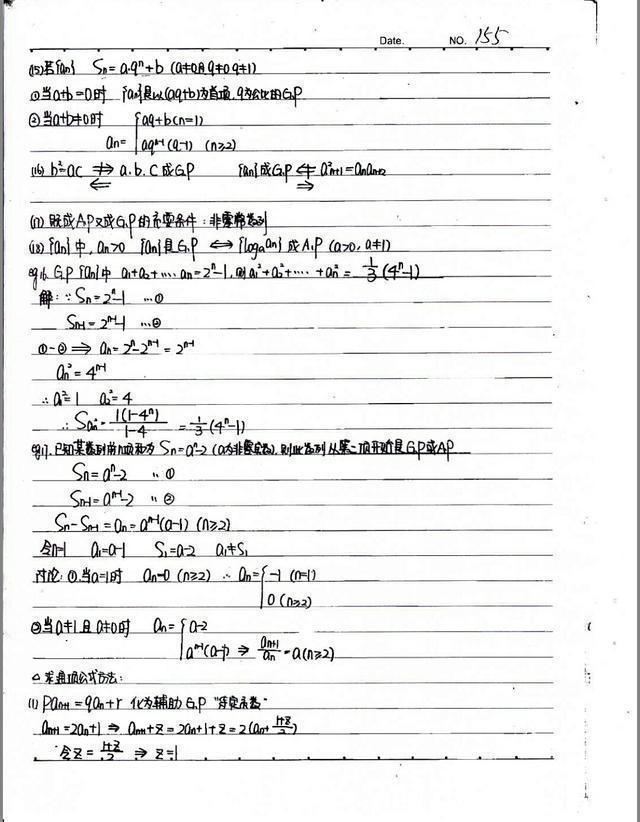 Date. NO. 155
(15)若{an} Sn=a·qⁿ+b (a≠0且q≠0 q≠1)
①当a+b=0时 {an}是以(aq+b)为首项,q为公比的G.P
②当a+b≠0时 {aq+b(n=1)
an= aqⁿ⁻¹(q-1) (n≥2)
(16) b²=ac ⇏ a.b.c成G.P {an}成G.P ⇍ a²n+1=anan+2
⇐ ⇒
(17) 既成A.P又成G.P的充要条件:非零常数列
(18) {an}中, an>0 {an}是G.P ⇔ {logₐan}成A.P (a>0, a≠1)
eg16. G.P {an}中 a₁+a₂+…… an=2ⁿ-1, 则a₁²+a₂²+……+an²= 1/3(4ⁿ-1)
解:∵Sn=2ⁿ-1 …①
Sn-1=2ⁿ⁻¹-1 …②
①-② ⟹ an=2ⁿ-2ⁿ⁻¹=2ⁿ⁻¹
an²=4ⁿ⁻¹
∴a₁²=1 a₂²=4
∴San²= 1(1-4ⁿ)/1-4 = 1/3(4ⁿ-1)
eg17. 已知某数列前n项和为Sn=aⁿ-2 (a为非零实数), 则此数列从第二项开始是G.P或A.P
Sn=aⁿ-2 ①
Sn-1=aⁿ⁻¹-2 ②
Sn-Sn-1=an=aⁿ⁻¹(a-1) (n≥2)
令n=1 a₁=a-1 S₁=a-2 a₁≠S₁
讨论:①.当a=1时 an=0 (n≥2) ∴ an={-1 (n=1)
0 (n≥2)
②当a≠1且a≠0时 an={a-2
aⁿ⁻¹(a-1) ⇒ an+1/an=a(n≥2)
△求通项公式方法:
(1) Pan+1=qan+r 化为辅助G.P "待定系数"
an+1=2an+1 ⇒ an+1+z=2an+1+z=2(an+ 1+z/2)
令z= 1+z/2 ⇒ z=1